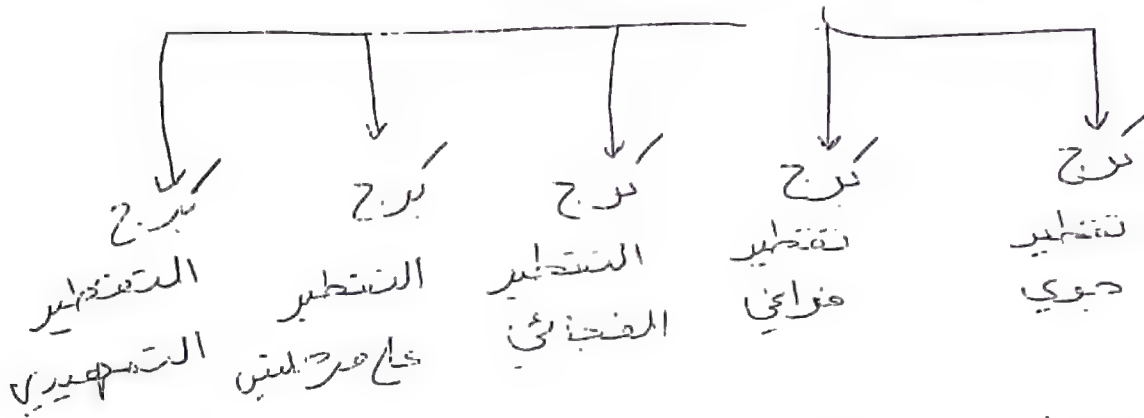 برج
تقطير
جوي
برج
تقطير
فراغي
برج
التقطير
الفجائي
برج
التقطير
على مرحلتين
برج
التقطير
التمهيدي